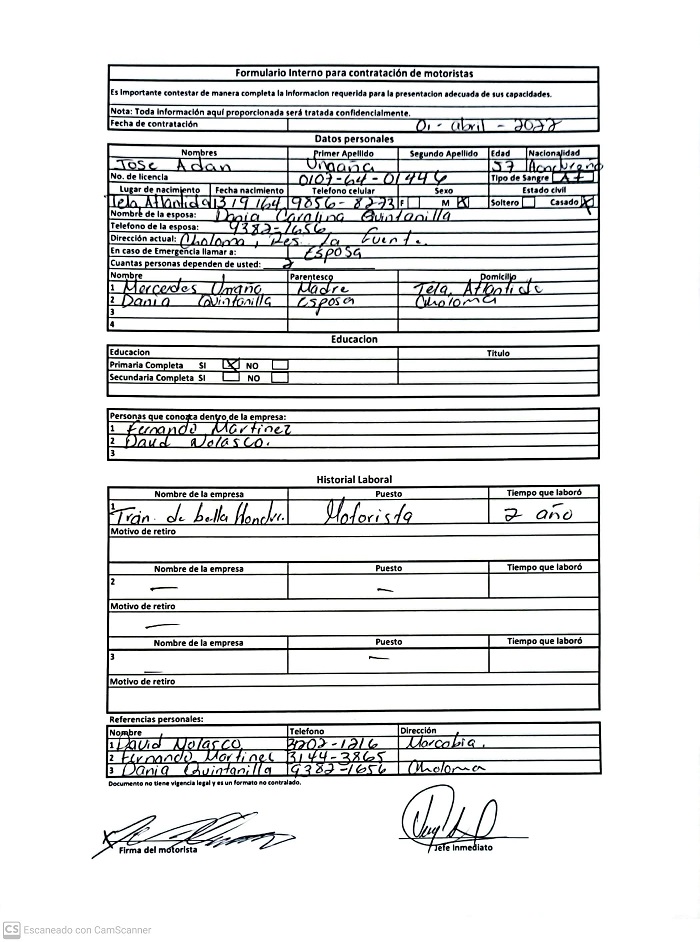 Formulario Interno para contratación de motoristas
Es Importante contestar de manera completa la informacion requerida para la presentacion adecuada de sus capacidades.
Nota: Toda información aquí proporcionada será tratada confidencialmente.
Fecha de contratación 01 - abril - 2022
Datos personales
Nombres Primer Apellido Segundo Apellido Edad Nacionalidad
Jose Adan Umaña 57 Hondureño
No. de licencia 0107-64-01446 Tipo de Sangre
Lugar de nacimiento Fecha nacimiento Telefono celular Sexo Estado civil
Tela, Atlantida 9856-8273 F M X Soltero Casado X
Nombre de la esposa: Dania Carolina Quintanilla
Telefono de la esposa: 9382-1656
Dirección actual: Choloma, Res. la Fuente.
En caso de Emergencia llamar a: Esposa
Cuantas personas dependen de usted: 2
Nombre Parentesco Domicilio
1 Mercedes Umaña Madre Tela, Atlantida
2 Dania Quintanilla esposa Choloma
3
4
Educacion
Educacion Titulo
Primaria Completa SI X NO
Secundaria Completa SI NO
Personas que conozca dentro de la empresa:
1 Fernando Martinez
2 David Nolasco.
3
Historial Laboral
Nombre de la empresa Puesto Tiempo que laboró
1 Tran. de bella Hondu. Motorista 2 año
Motivo de retiro
Nombre de la empresa Puesto Tiempo que laboró
2 — —
Motivo de retiro
—
Nombre de la empresa Puesto Tiempo que laboró
3 — —
Motivo de retiro
Referencias personales:
Nombre Telefono Dirección
1 David Nolasco 3202-1216
2 Fernando Martinez 3144-3865
3 Dania Quintanilla 9382-1656 Choloma
Documento no tiene vigencia legal y es un formato no contralado.
Firma del motorista Jefe Inmediato
CS Escaneado con CamScanner